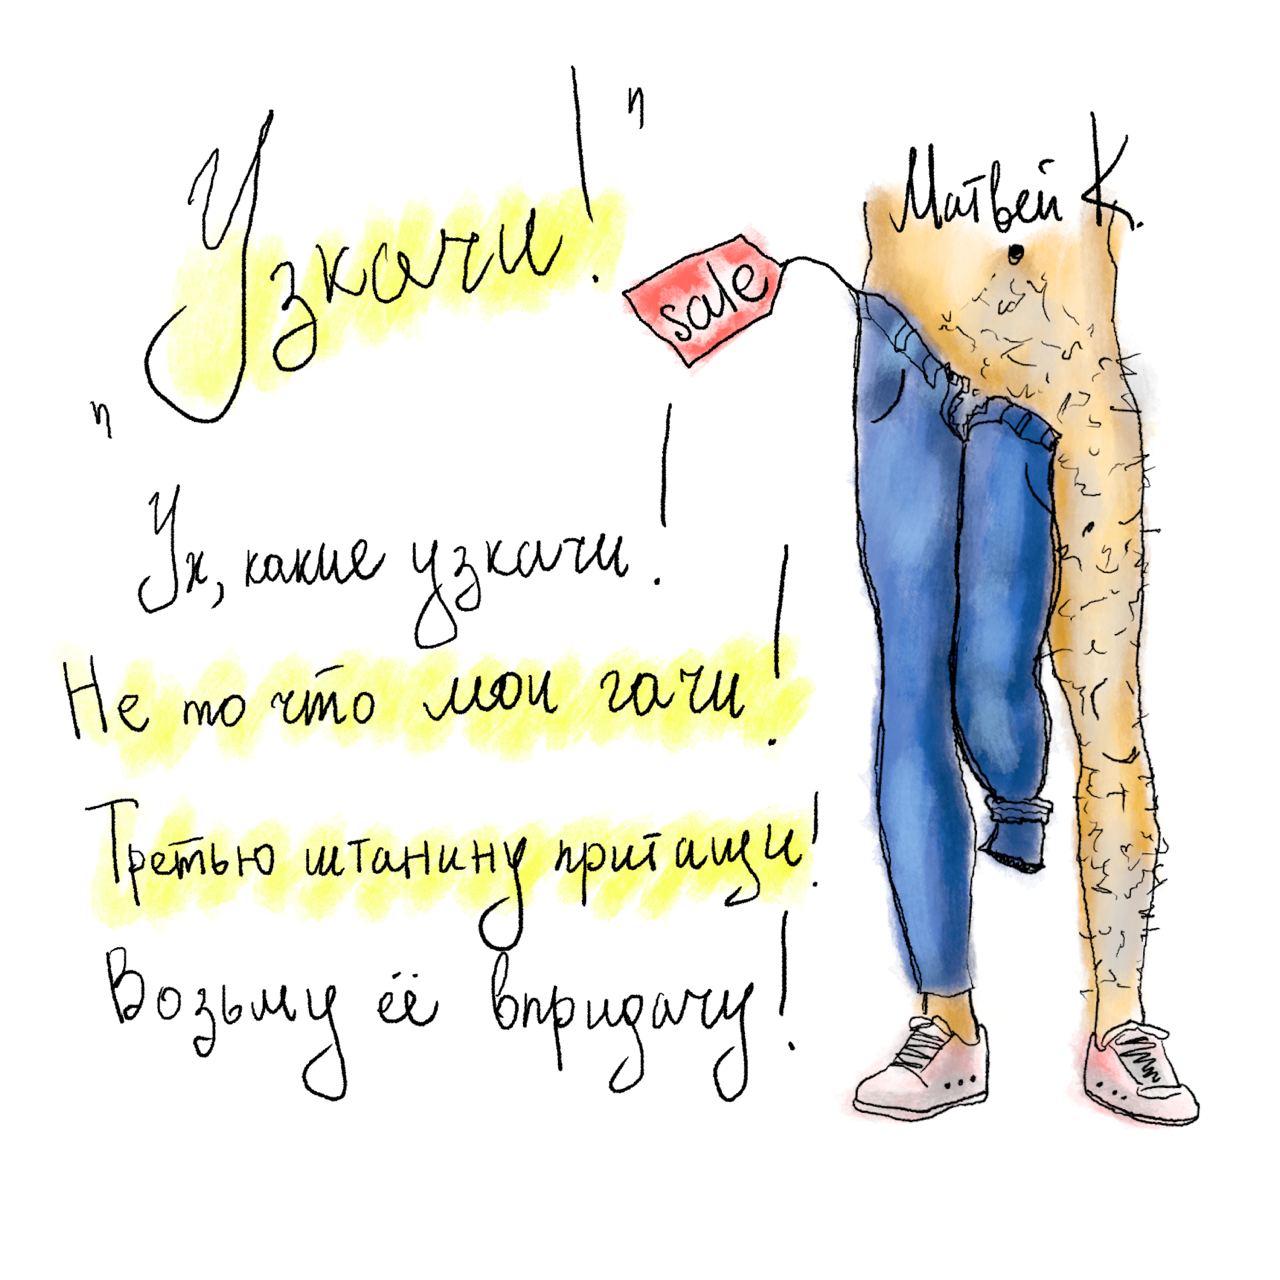 "Узкачи!"
Матвей К.
sale
Ух, какие узкачи!
Не то что мои гачи!
Третью штанину притащи!
Возьму её впридачу!